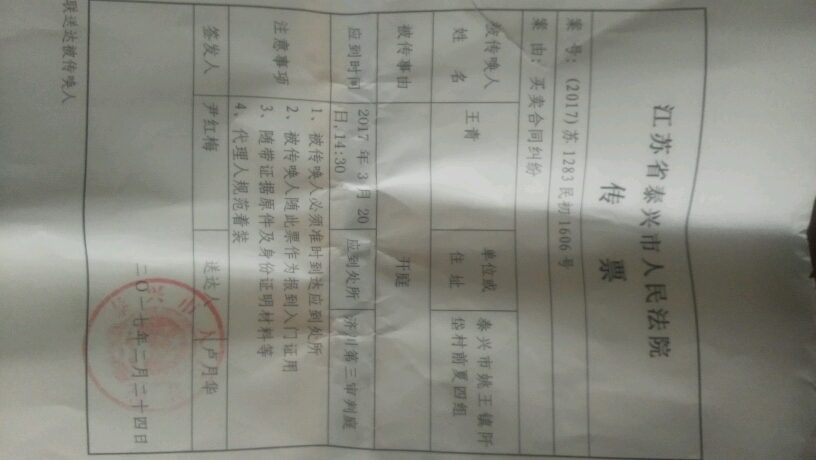 江苏省泰兴市人民法院
传票
案 号：(2017)苏1283民初1606号
案 由：买卖合同纠纷
被传唤人姓名 王青 单位或住址 泰兴市姚王镇阡岱村前夏四组
被传事由 开庭
应到时间 2017年3月20日,14:30 应到处所 济川第三审判庭
注意事项
1、被传唤人必须准时到达应到处所
2、被传唤人随此票作为报到入门证用
3、随带证据原件及身份证明材料等
4、代理人规范着装
签发人 尹红梅 送达人 卢月华
二〇一七年二月二十四日
联送达被传唤人